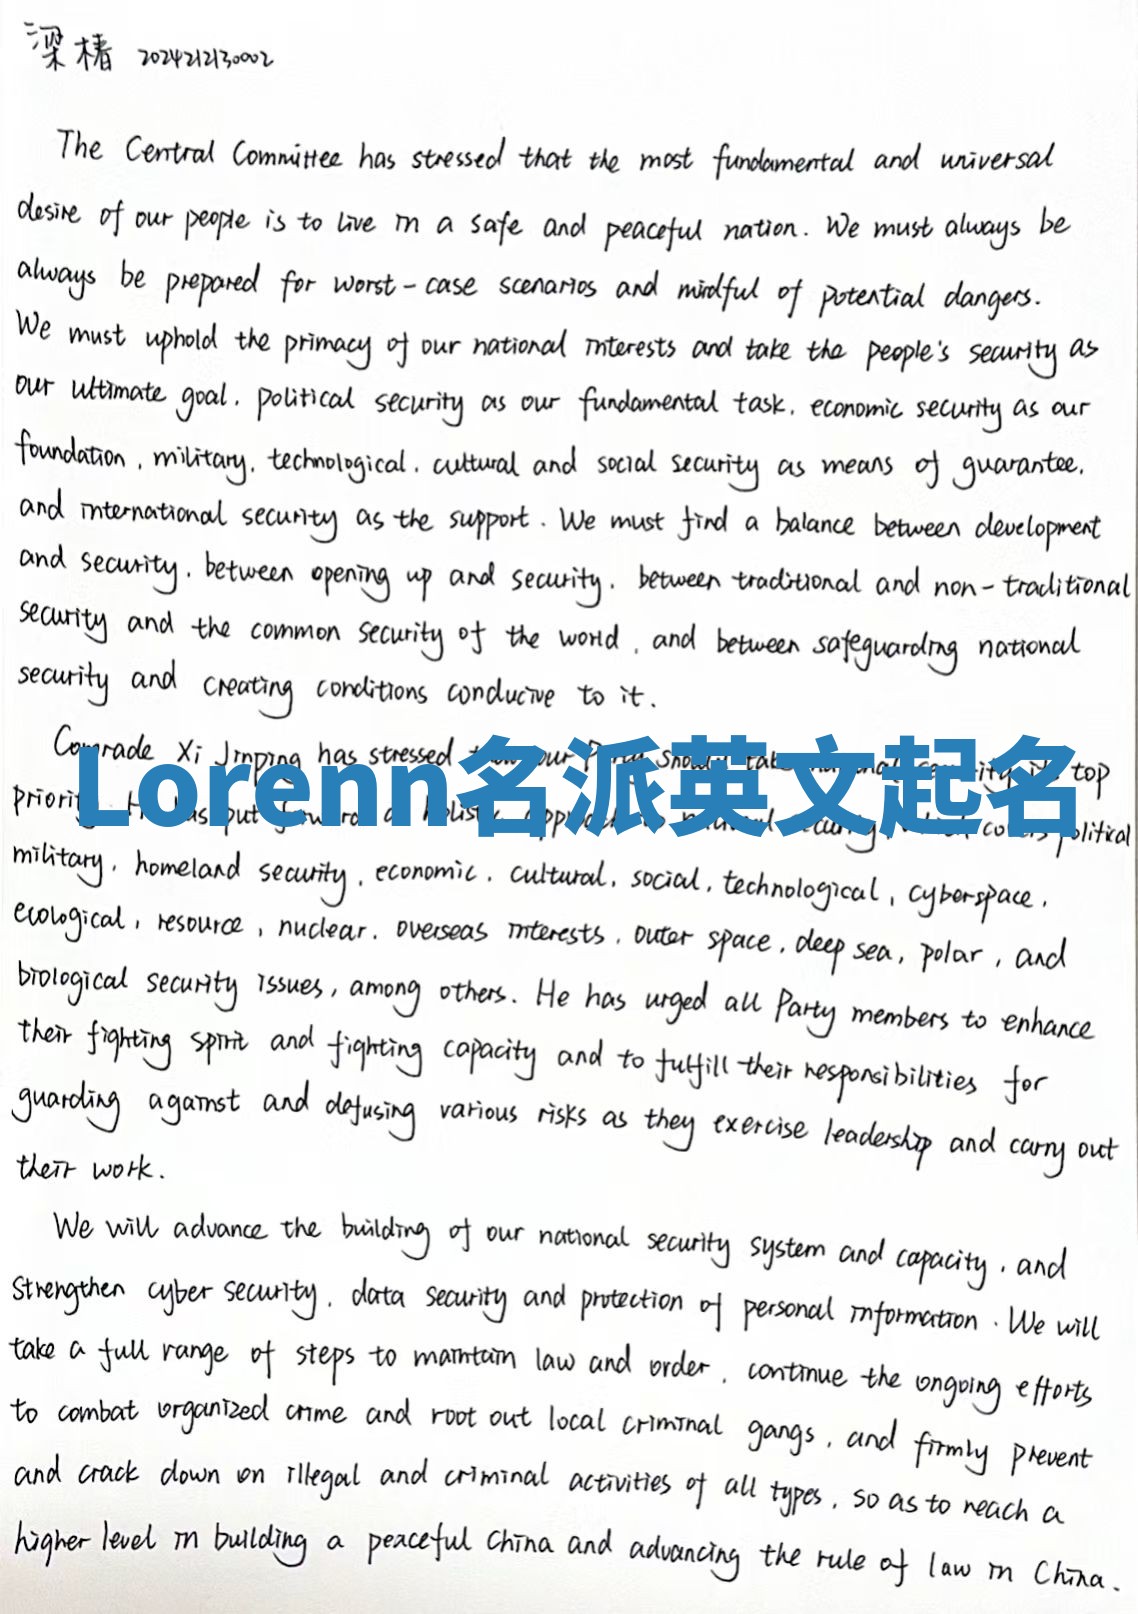 梁椿 2024212130002
The Central Committee has stressed that the most fundamental and universal
desire of our people is to live in a safe and peaceful nation. We must always be
always be prepared for worst-case scenarios and mindful of potential dangers.
We must uphold the primacy of our national interests and take the people's security as
our ultimate goal, political security as our fundamental task, economic security as our
foundation, military, technological, cultural and social security as means of guarantee,
and international security as the support. We must find a balance between development
and security, between opening up and security, between traditional and non-traditional
security and the common security of the world, and between safeguarding national
security and creating conditions conducive to it.
Comrade Xi Jinping has stressed our top
Lorenn名派英文起名
put political
military, homeland security, economic, cultural, social, technological, cyberspace,
ecological, resource, nuclear, overseas interests, outer space, deep sea, polar, and
biological security issues, among others. He has urged all Party members to enhance
their fighting spirit and fighting capacity and to fulfill their responsibilities for
guarding against and defusing various risks as they exercise leadership and carry out
their work.
We will advance the building of our national security system and capacity, and
strengthen cyber security, data security and protection of personal information. We will
take a full range of steps to maintain law and order, continue the ongoing efforts
to combat organized crime and root out local criminal gangs, and firmly prevent
and crack down on illegal and criminal activities of all types, so as to reach a
higher level in building a peaceful China and advancing the rule of law in China.